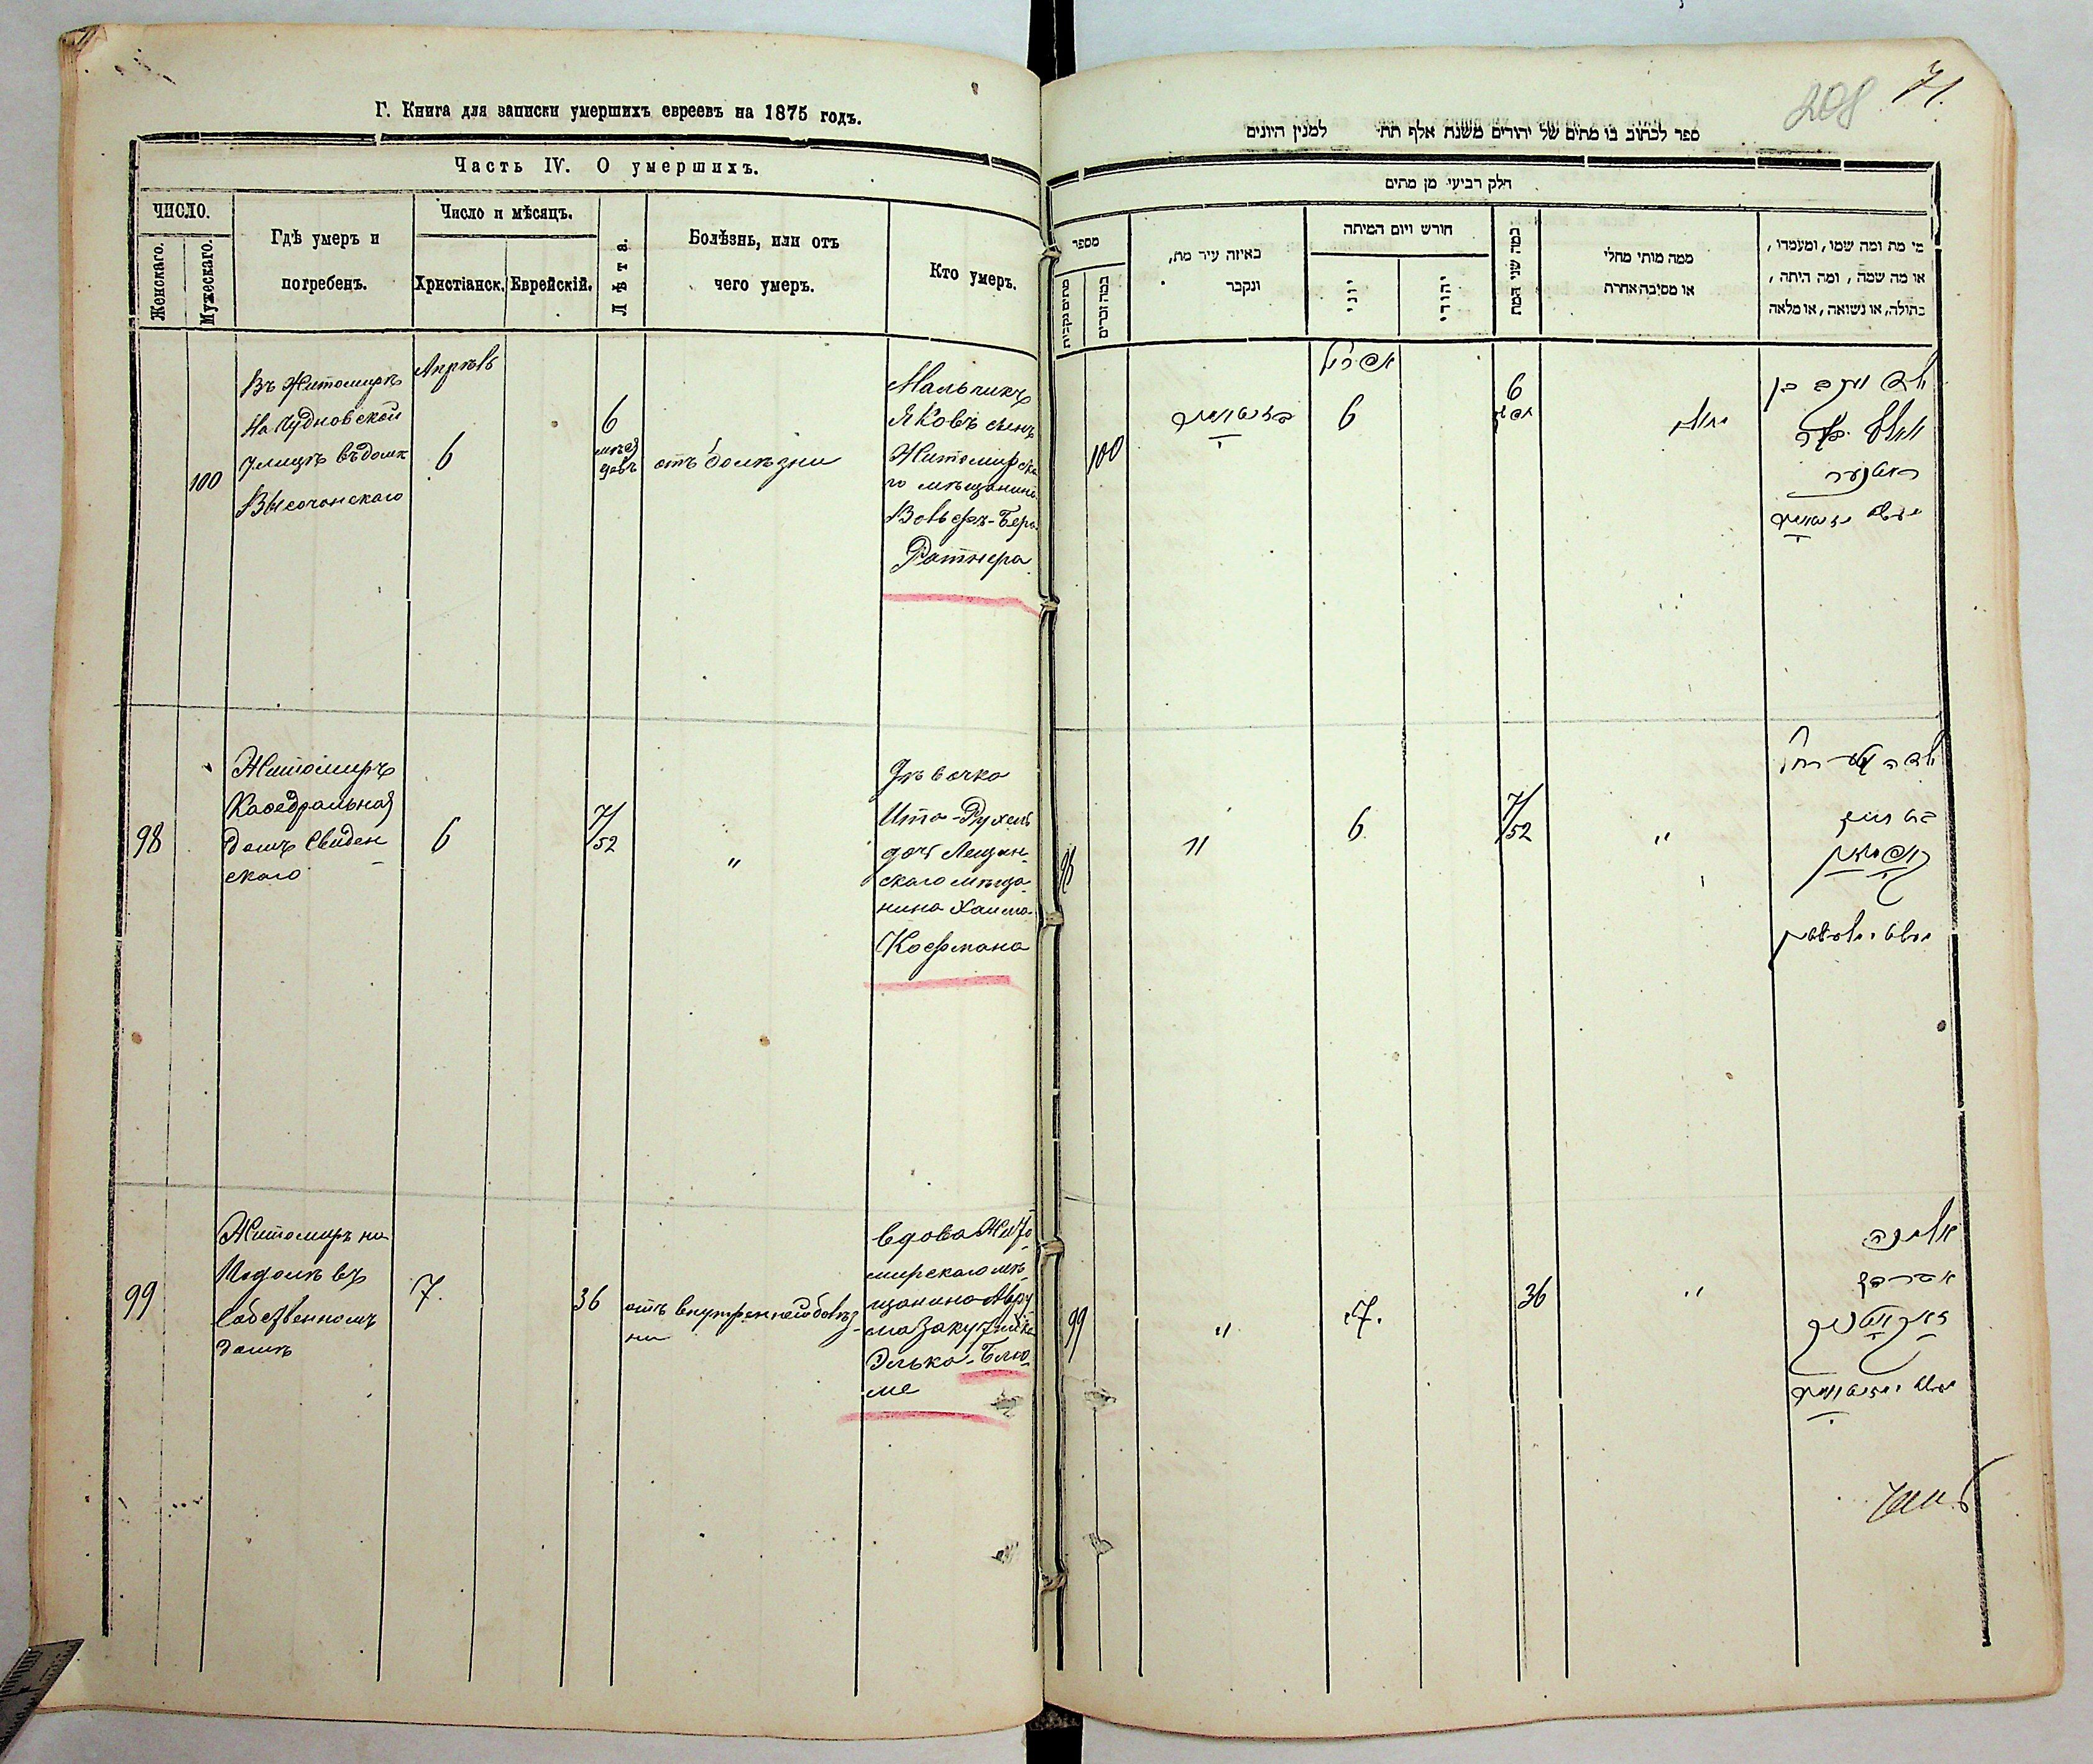 Г. Книга для записки умершихъ евреевъ на 1875 годъ.
Часть IV. О умершихъ.
ЧИСЛО.
Женскаго.
Мужескаго.
Гдѣ умеръ и
погребенъ.
Число и мѣсяцъ.
Христіанск.
Еврейскій.
Лѣта.
Болѣзнь, или отъ
чего умеръ.
Кто умеръ.
100
Въ Житомирѣ
На Чудновской
улицѣ въ домѣ
Высочанскаго
Апрѣль
6
6
отъ болѣзни
Мальчикъ
Яковъ сынъ
Житомирска
го мѣщанина
Вольфъ-Бера
Ратнера
98
Житомиръ
Каѳедральная
домъ Свиден
скаго
6
7/52
"
Дѣвочка
Ита-Рухель
дочь
скаго мѣща-
нина Хаима
Кофмана
99
Житомиръ на
Подолѣ въ
Собственномъ
домѣ
7.
36
отъ внутренней болѣз-
ни
вдова Жито-
мирскаго мѣ-
щанина Авру
ма
Элька-Блю-
ме
208
71.
ספר לכתוב בו מתים של יהודים משנת אלף תת׳ למנין היונים
חלק רביעי מן מתים
מספר
כמה נקבות
כמה זכרים
באיזה עיר מת,
ונקבר
חודש ויום המיתה
יוני
יהודי
כמה שני המת
ממה מותי מחלי
או מסיבה אחרת
מי מת ומה שמו, ומעמדו,
או מה שמה, ומה היתה,
בתולה, או נשואה, או מלאה
100
בזיטאמיר
אפריל
6
6
ילד יעקב בן
וואלף בער
ראטנער
98
"
6
7/52
"
ילדה איטע רחל
בת חיים
קאפמאן
99
"
7.
36
"
אלמנה
אברהם